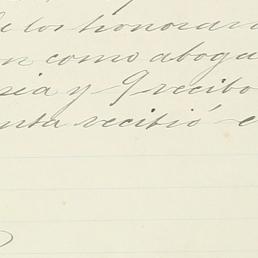 de los honorar
on como aboga
sia y 9 recibo
enta recibió e